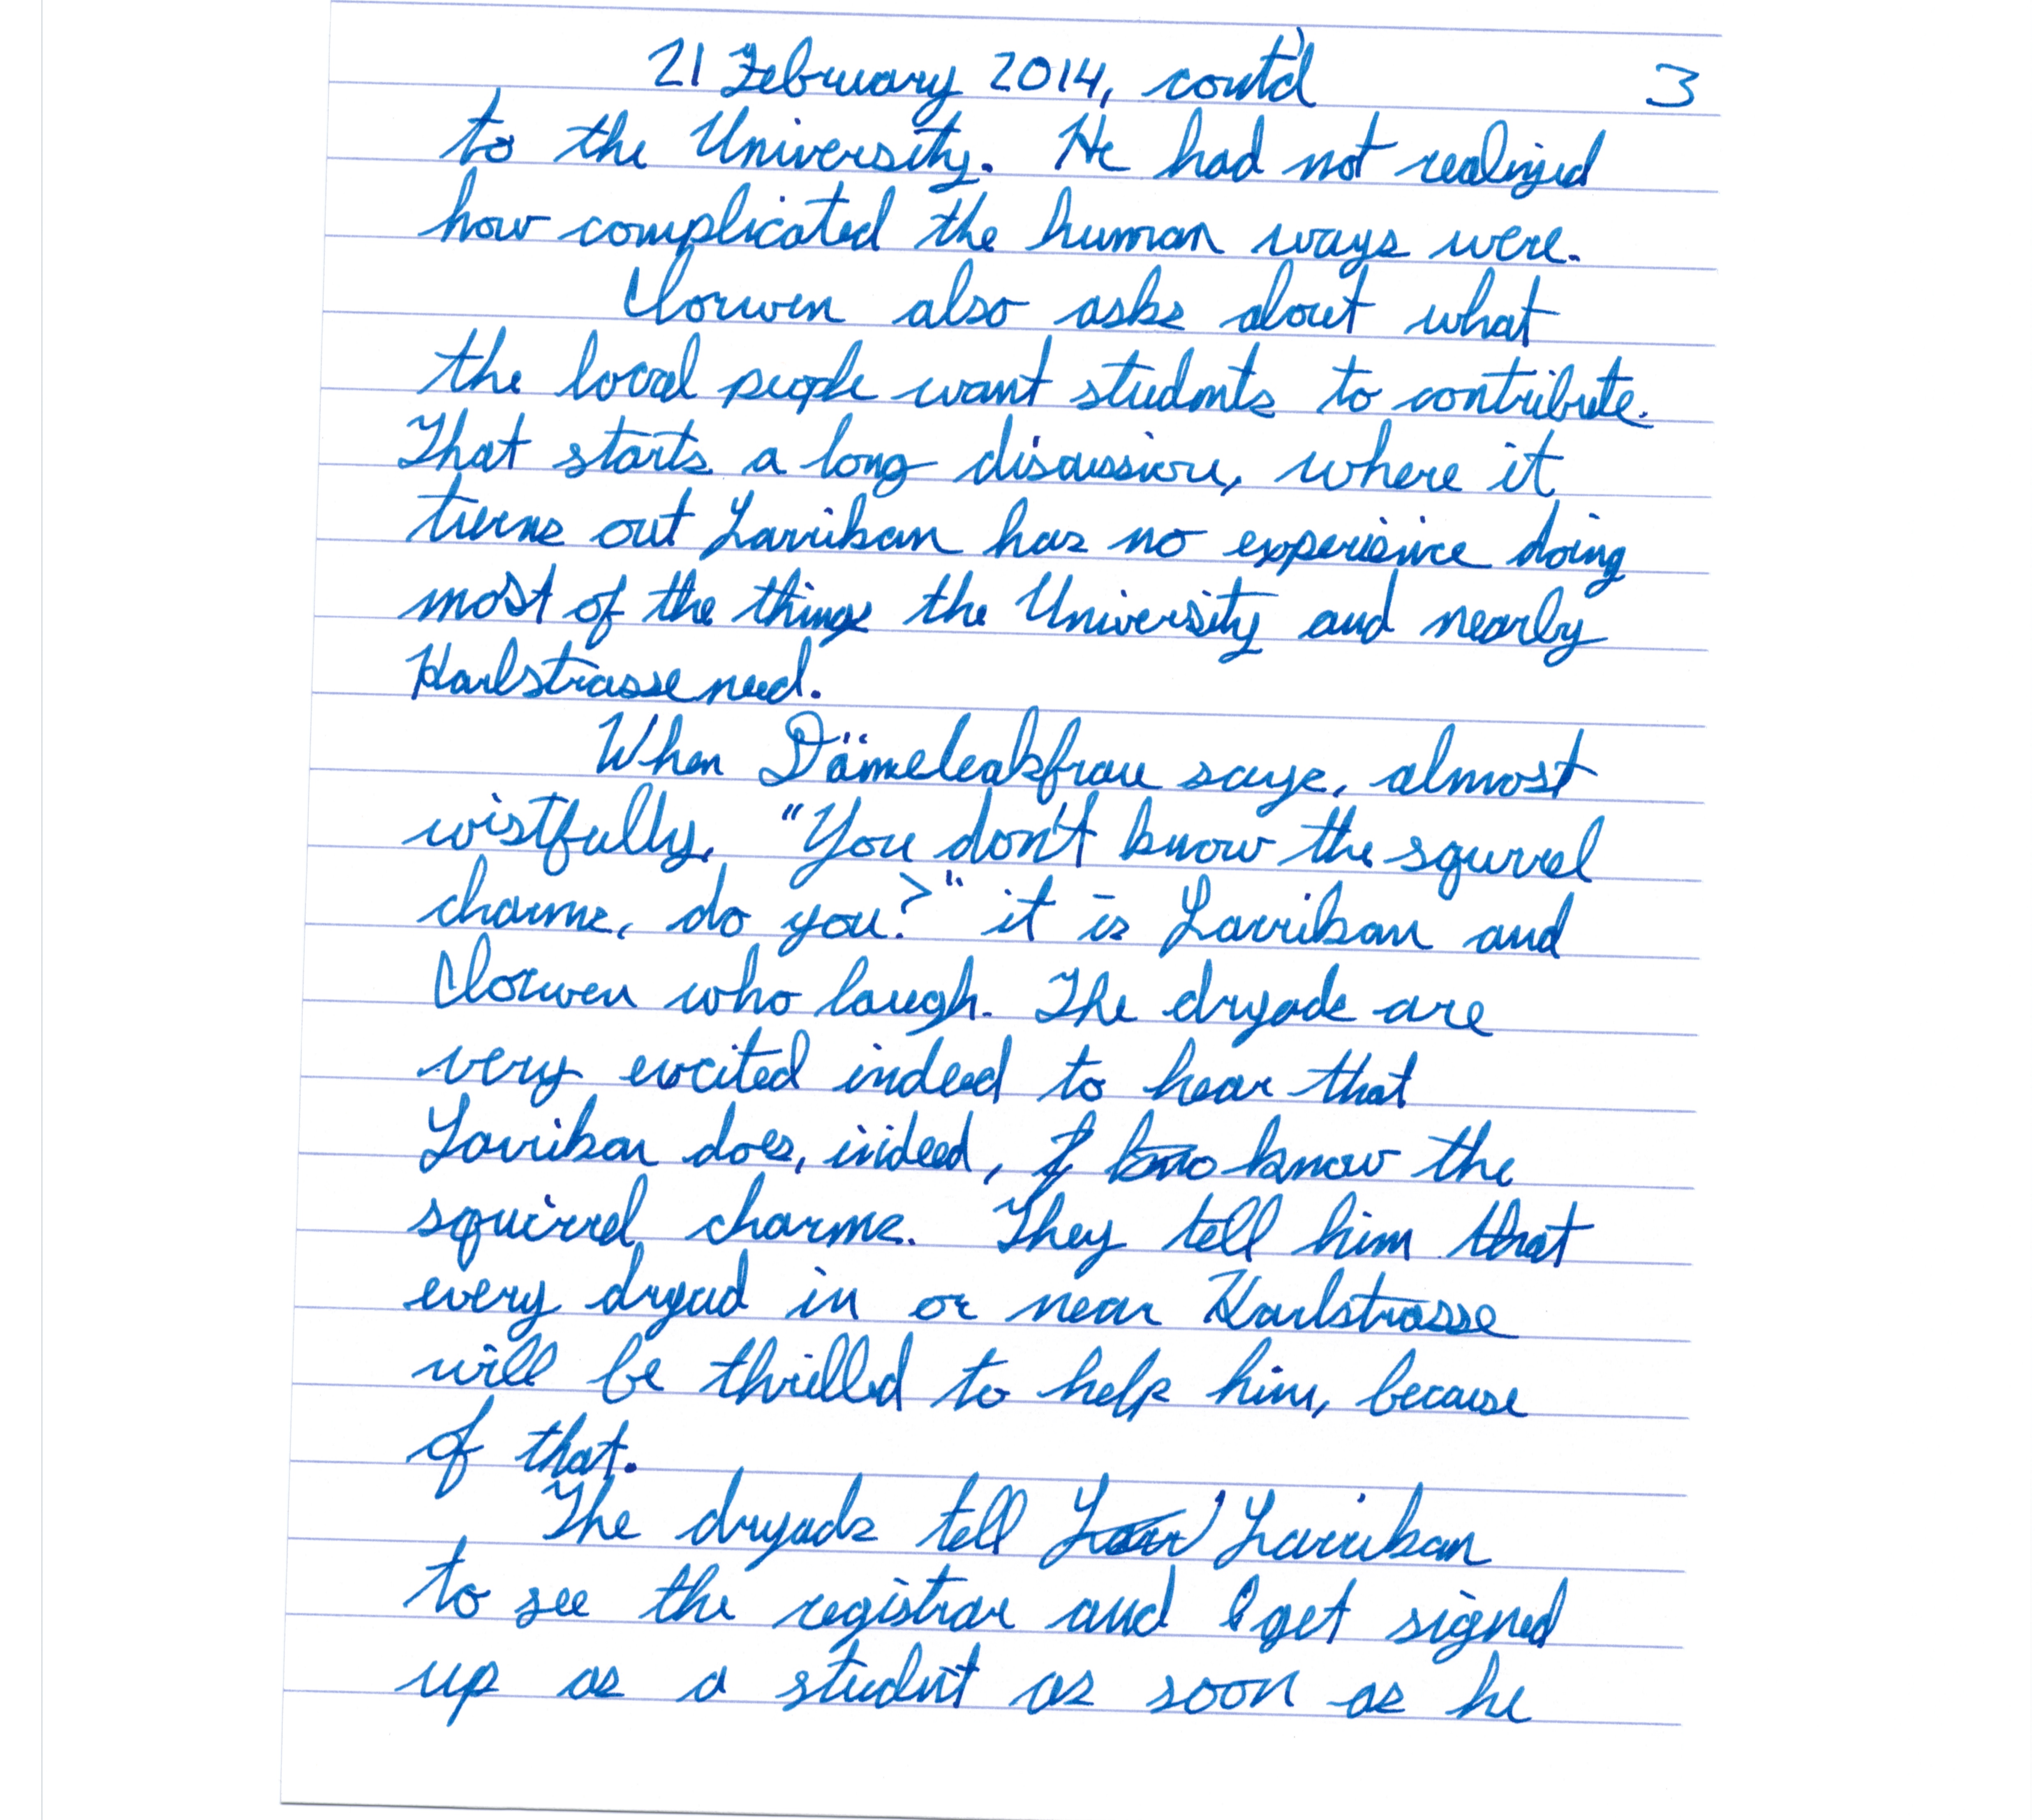 21 February 2014, cont'd 3
to the University. He had not realized
how complicated the human ways were.
Clorwen also asks about what
the local people want students to contribute.
That starts a long discussion, where it
turns out Larriban has no experience doing
most of the things the University and nearby
Karlstrasse need.
When Dämeleakfrau says, almost
wistfully, "You don't know the squrrel
charms, do you?" it is Larriban and
Clorwen who laugh. The dryads are
very excited indeed to hear that
Larriban does, indeed, know the
squirrel charms. They tell him that
every dryad in or near Karlstrasse
will be thrilled to help him, because
of that.
The dryads tell Larriban
to see the registrar and get signed
up as a student as soon as he